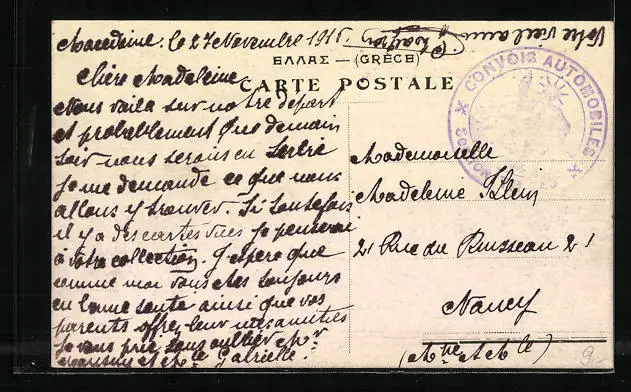 Macedoine. le 27 Novembre 1916.
Votre vieil ami
ΕΛΛΑΣ — (GRÈCE)
CARTE POSTALE
CONVOIS AUTOMOBILES
Chère Madeleine
Nous voila sur notre depart
et probablement que demain
soir nous serons en Serbie
Je me demande ce que nous
allons y trouver. Si toutefois
il y a des cartes vues je penserai
à votre collection. J'espere que
comme moi vous etes toujours
en bonne santé ainsi que vos
parents offrez leur mes amities
je vous prie sans oublier Mr
et Mlle Gabrielle.
Mademoiselle
Madeleine Klein
21 Rue du Ruisseau 21
Nancy
(Mthe et Mlle)